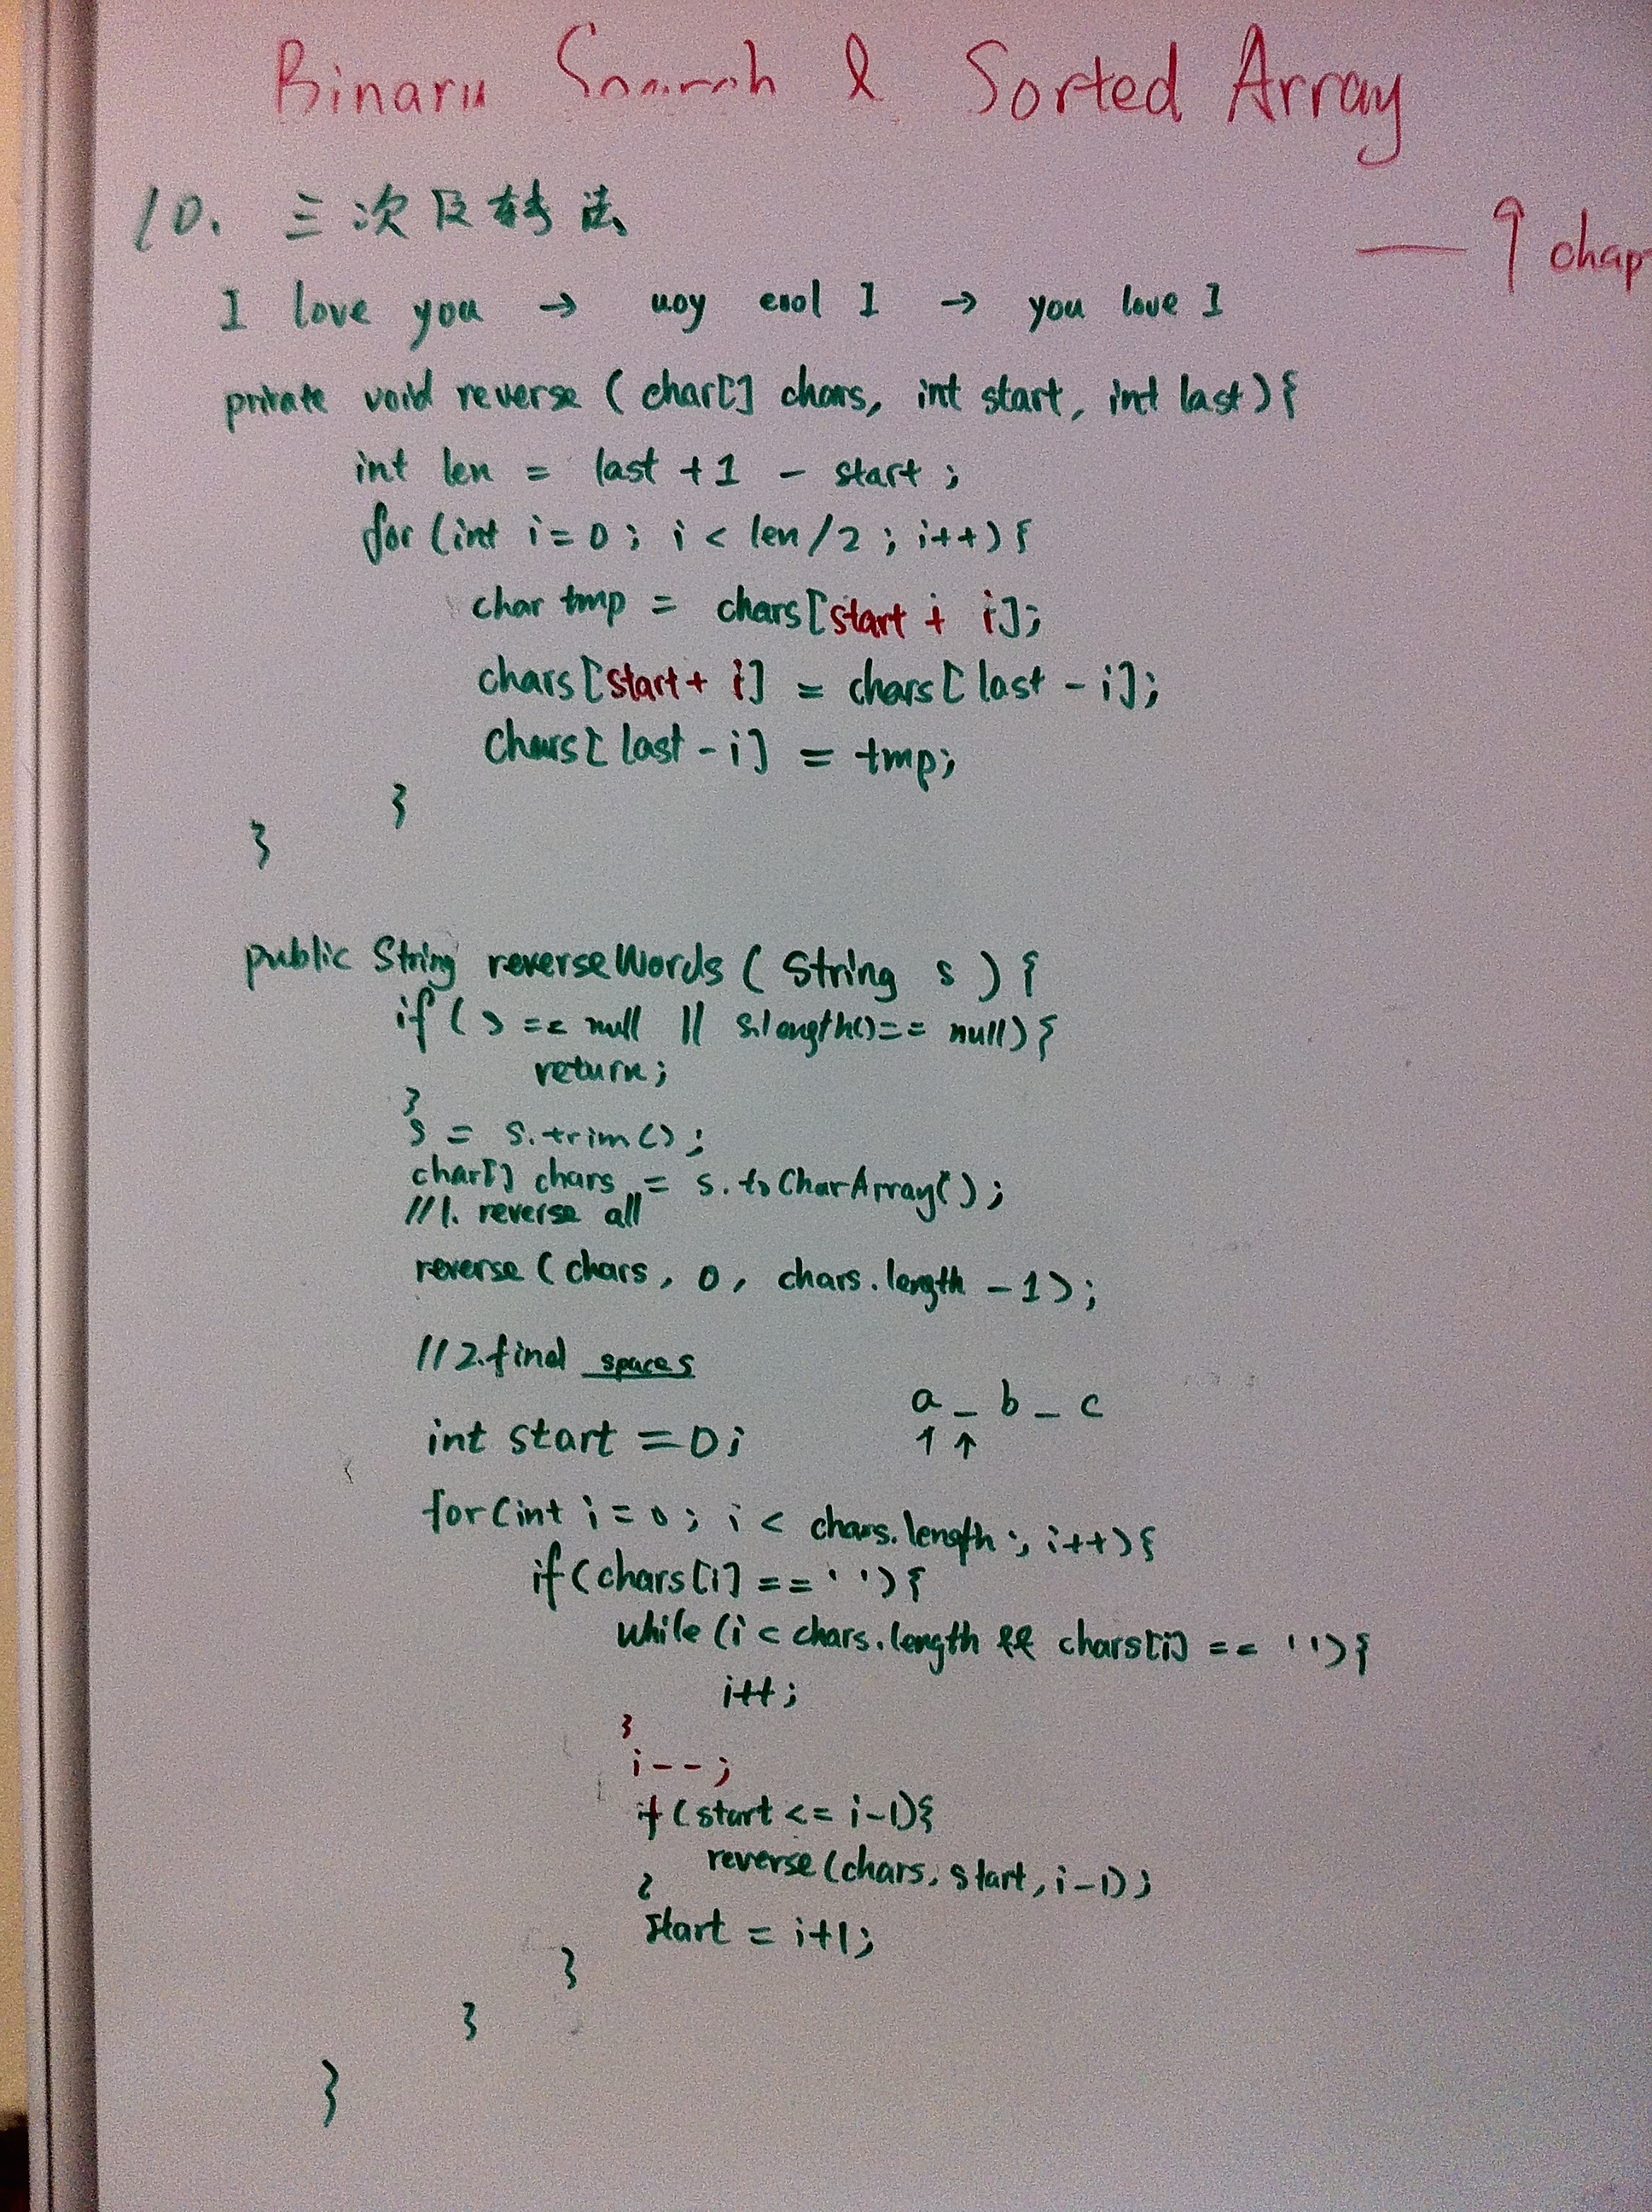 Binary Search & Sorted Array
10. 三次反转法
— 9 chap
I love you → uoy evol I → you love I
private void reverse ( char[] chars, int start, int last) {
int len = last + 1 - start ;
for (int i = 0 ; i < len/2 ; i++) {
char tmp = chars[start + i];
chars[start + i] = chars[ last - i];
chars[ last - i] = tmp;
}
}
public String reverseWords ( String s ) {
if ( s == null || s.length() == null) {
return;
}
s = s.trim() ;
char[] chars = s.toCharArray() ;
// 1. reverse all
reverse ( chars , 0 , chars.length - 1 ) ;
// 2. find spaces
a _ b _ c
int start = 0 ;
↑ ↑
for (int i = 0 ; i < chars.length ; i++) {
if (chars[i] == ' ') {
while (i < chars.length && chars[i] == ' ') {
i++ ;
}
i-- ;
if (start <= i-1) {
reverse (chars, start, i-1) ;
}
start = i+1 ;
}
}
}